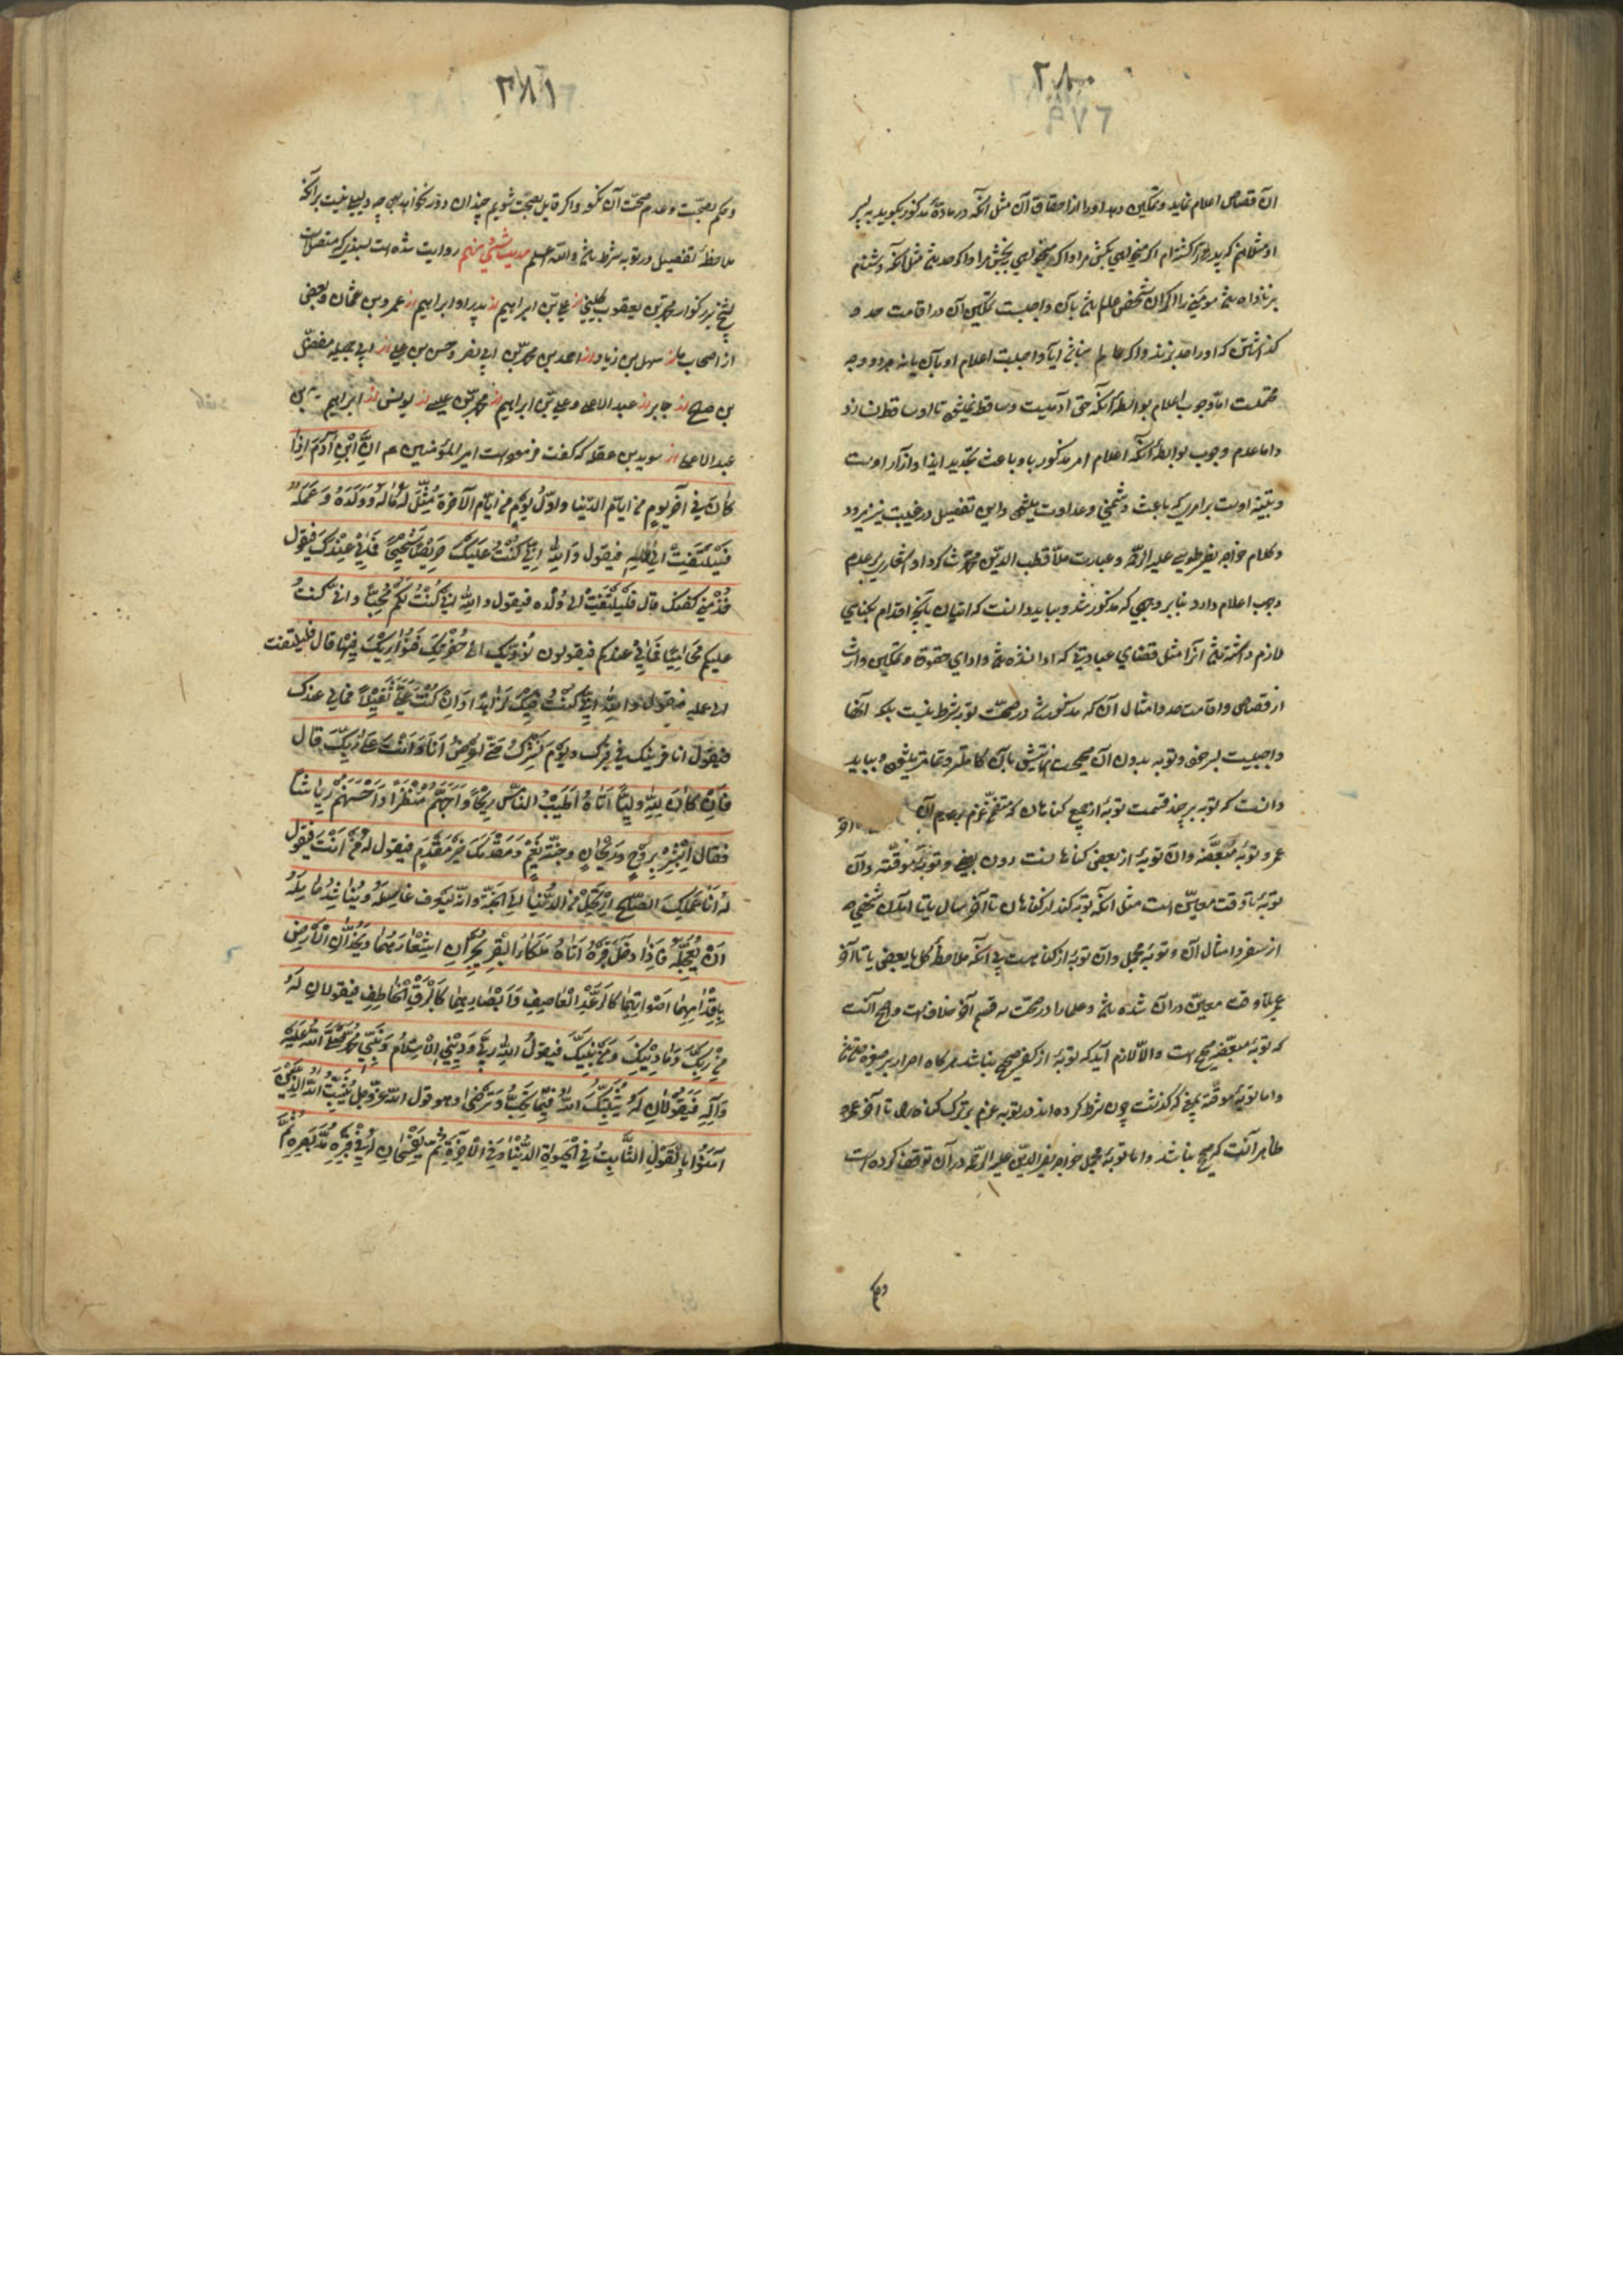 ۲۸۰
۹۷۶
آن قصاص اعلام نماید و تمکین دهد او را از احقاق آن مثل آنکه در ماده مذکور بگوید به پسر
او مثلا من که پدر ترا کشته‌ام اگر میخواهی بکش مرا و اگر میخواهی ببخش مرا و اگر حد باشد مثل آنکه دشنام
بزنا داده باشد مؤمنی را اگر آن شخص عالم باشد بآن واجبست تمکین آن در اقامت حد
که او را حد بزند و اگر عالم نباشد آیا واجبست اعلام او بآن یا نه هر دو وجه
محتملست اما وجوب اعلام بواسطه آنکه حق آدمیست و ساقط نمیشود تا او ساقط نسازد
و اما عدم وجوب بواسطه آنکه اعلام امر مذکور باو باعث تجدید ایذا و آزار اوست
و تنبیه اوست بر امری که باعث دشمنی و عداوت میشود و این تفصیل در غیبت نیز میرود
و کلام خواجه نصیر طوسی علیه الرحمه و عبارت ملا قطب الدین محمد شاگرد او اشعار بر عدم
وجوب اعلام دارد و بنابر وجهی که مذکور شد و بباید دانست که اتیان بآنچه اقدام بجنایی
لازم داشته باشد آنرا مثل قضای عبادتی که ادا نشده باشد و ادای حقوق و تمکین وارث
از قصاص و اقامت حد و امثال آن که مذکور شد در صحت توبه شرط نیست بلکه آنها
واجبیست برخود و توبه بدون آن صحیحست نهایتش بآن کاملتر و تمامتر میشود و بباید
دانست که توبه بر چند قسمت توبه از جمیع گناهان که متضمن عزم بر عدم آن
عمر و توبه مبعضه و آن توبه از بعضی گناهانست دون بعضی و توبه موقته و آن
توبه تا وقت معین است مثل آنکه توبه کند از گناهان تا آخر سال یا تا آمدن شخصی
از سفر و امثال آن و توبه مجمل و آن توبه از گناهست بی آنکه ملاحظه کل یا بعضی یا تا آخر
عمر یا تا وقت معین در آن شده باشد و علما را در صحت سه قسم آخر خلافست و اصح آنست
که توبه مبعضه صحیح است و الا لازم آید که توبه از کفر صحیح نباشد هرگاه اصرار بر صغیره
و اما توبه موقته بنحوی که گذشت چون شرط کرده‌اند در توبه عزم بر ترک گناه را تا آخر عمر
ظاهر آنست که صحیح نباشد و اما توبه مجمل خواجه نصیر الدین علیه الرحمه در آن توقف کرده است
۲۸۱
و حکم بصحت و عدم صحت آن نکرده و اگر قایل بصحت شویم چندان دور نخواهد بود چه دلیلی نیست بر آنکه
ملاحظه تفصیل در توبه شرط باشد و الله اعلم حدیث شی و نهم روایت شده است بسندی که متصلست
بشیخ بزرگوار محمد بن یعقوب کلینی از علی بن ابراهیم از پدر او ابراهیم از عمرو بن عثمان و بعضی
از اصحاب ما از سهل بن زیاد از احمد بن محمد بن ابی نصر و حسن بن علی از ابی جمیله مفضل
بن صالح از جابر از عبد الاعلی و علی بن ابراهیم از محمد بن عیسی از یونس از ابراهیم بن
عبد الاعلی از سوید بن غفله که گفت فرموده است امیر المؤمنین ع م ان ابن آدم اذا
كان في آخر يوم من ايام الدنيا واول يوم من ايام الآخرة مثل له ماله وولده وعمله
فيلتفت الي ماله فيقول والله اني كنت عليك حريصا شحيحا فمالي عندك فيقول
خذ مني كفنك قال فيلتفت الي ولده فيقول والله اني كنت لكم محبا واني كنت
عليكم محاميا فماذالي عندكم فيقولون نؤديك الي حفرتك فنواريك فيها قال فيلتفت
الي عمله فيقول والله اني كنت فيك لزاهدا وان كنت علي لثقيلا فمالي عندك
فيقول انا قرينك في قبرك ويوم نشرك حتي اعرض انا وانت علي ربك قال
فان كان لله وليا اتاه اطيب الناس ريحا واجملهم منظرا واحسنهم رياشا
فقال ابشر بروح وريحان وجنة نعيم ومقدمك خير مقدم فيقول له من انت فيقول
له انا عملك الصالح ارتحل من الدنيا الي الجنة وانه ليعرف غاسله ويناشد حامله
ان يعجله فاذا دخل قبره اتاه ملكا القبر يجران اشعارهما ويخدان الارض
باقدامهما اصواتهما كالرعد العاصف وابصارهما كالبرق الخاطف فيقولان له
من ربك وما دينك ومن نبيك فيقول الله ربي وديني الاسلام ونبيي محمد صلى الله عليه
وآله فيقولان له ثبتك الله فيما تحب وترضى وهو قول الله عز وجل يثبت الله الذين
آمنوا بالقول الثابت في الحيوة الدنيا وفي الآخرة ثم يفسحان له في قبره مد بصره ثم